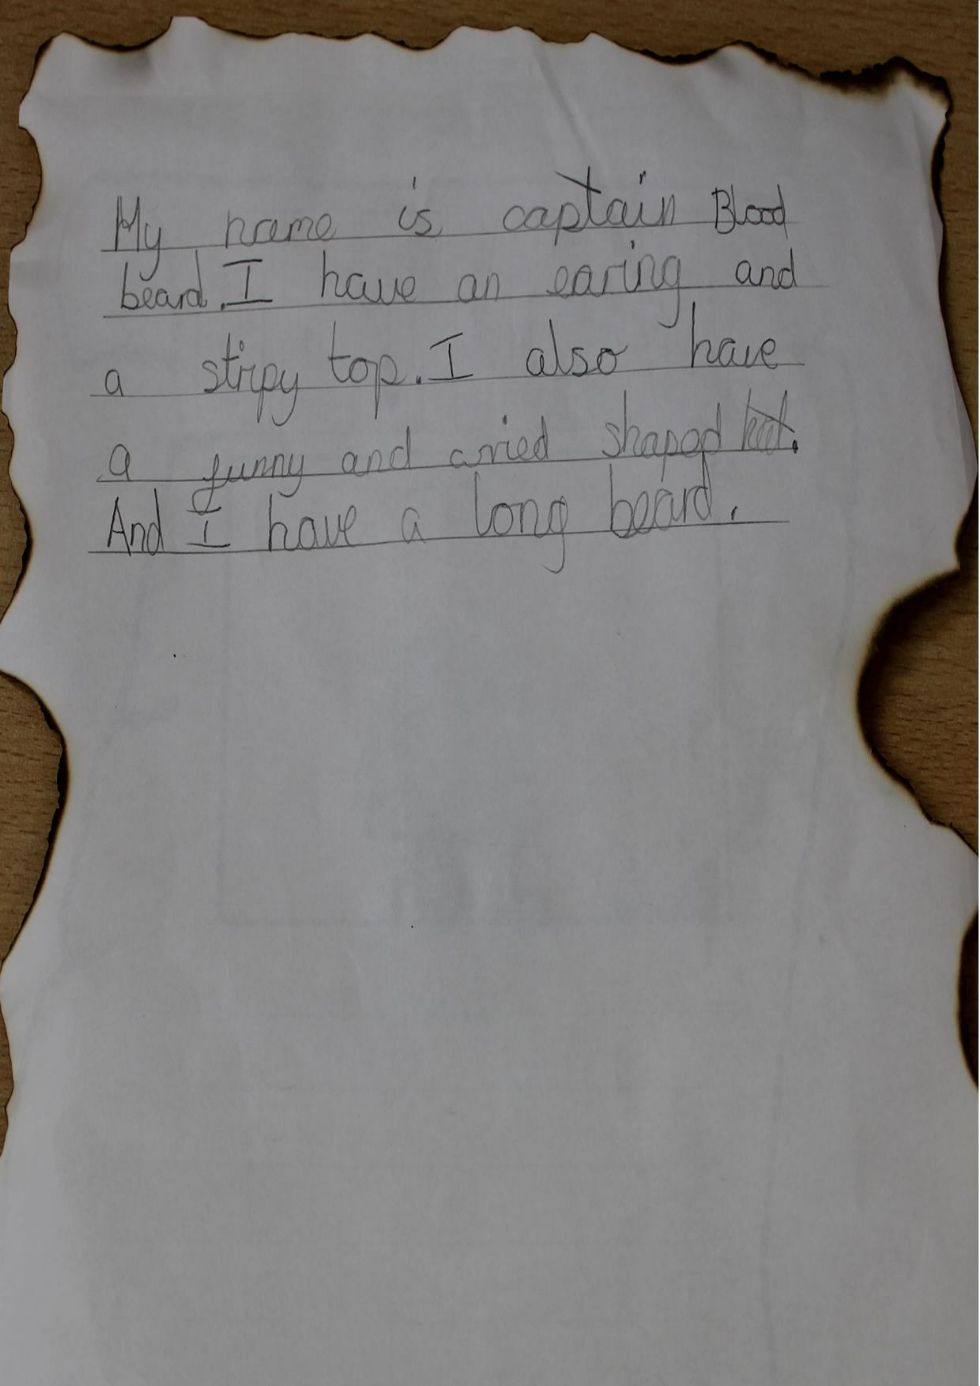 My name is captain Blood
beard. I have an earing and
a stripy top. I also have
a funny and shaped hat.
And I have a long beard.